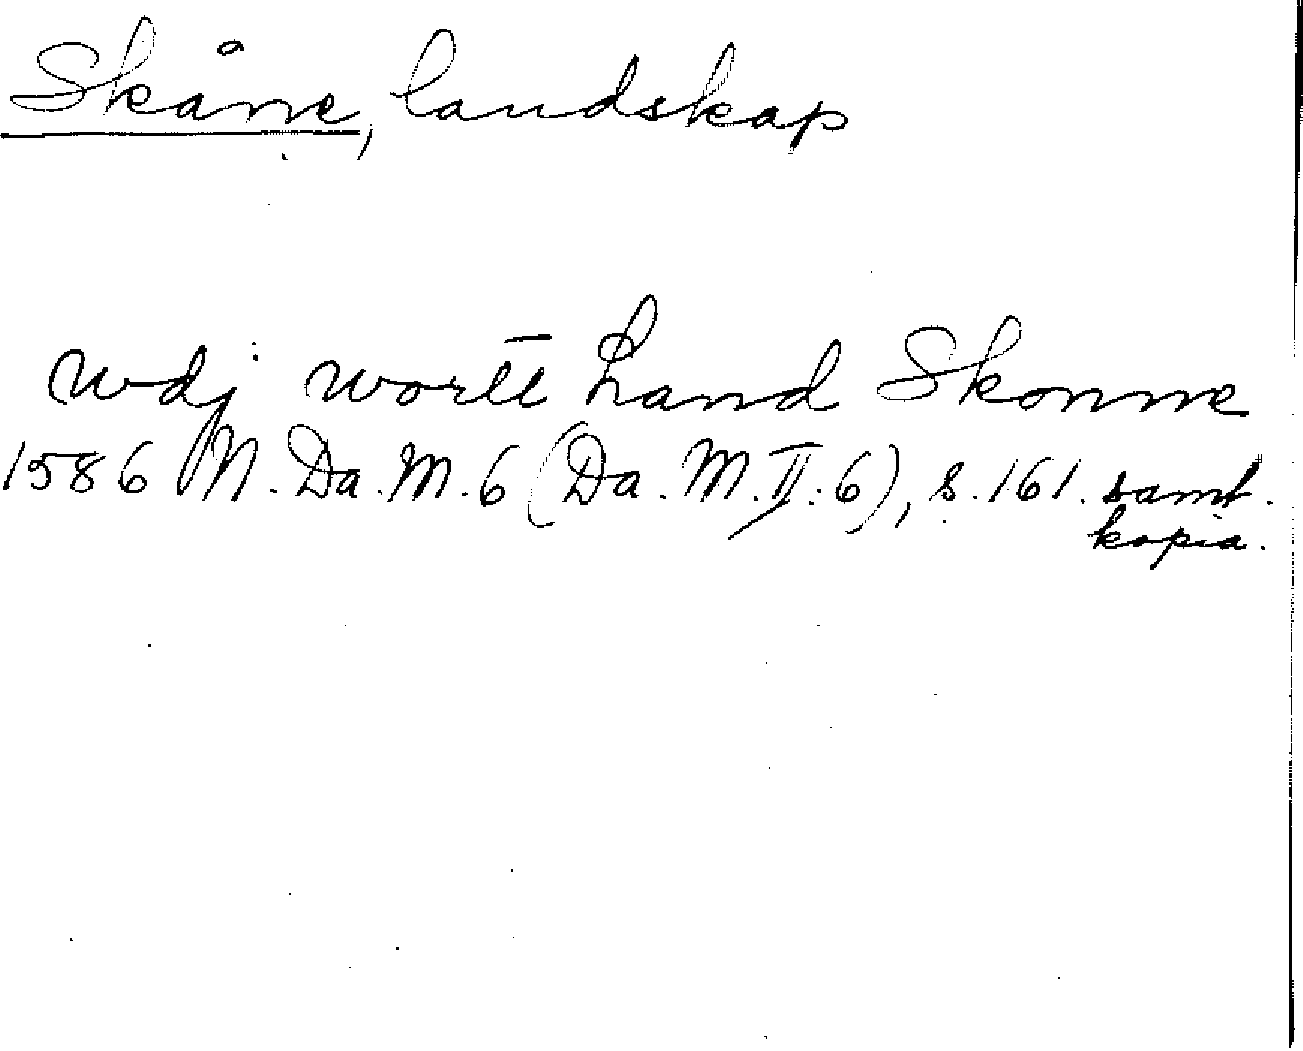 Skåne, landskap
wdj wortt Land Skonne
1586 N. Da. M. 6 (Da. M. II. 6), s. 161. samt.
kopia.